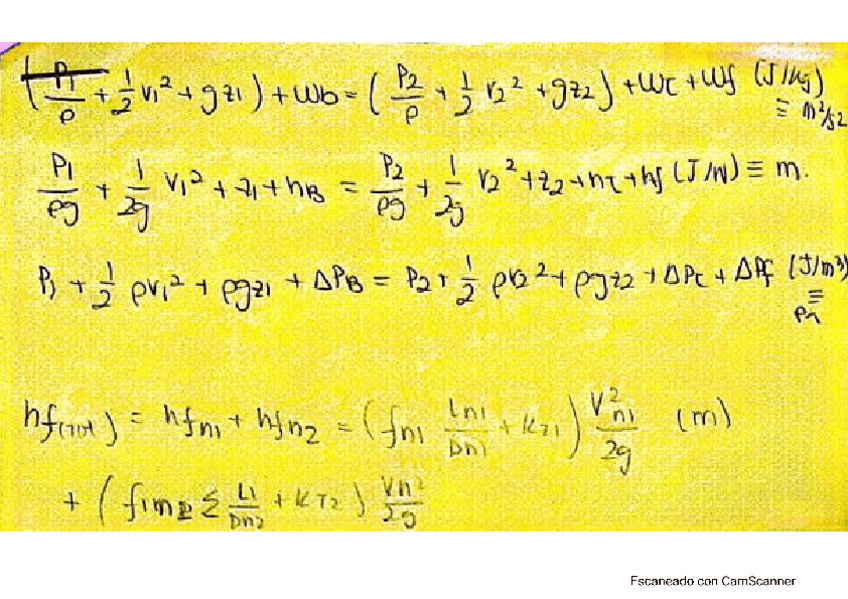 (P1/ρ + 1/2 v1² + gz1) + Wb = (P2/ρ + 1/2 v2² + gz2) + Wτ + Wf (J/kg)
≡ m²/s2
P1/ρg + 1/2g v1² + z1 + hB = P2/ρg + 1/2g v2² + z2 + hτ + hf (J/N) ≡ m.
P1 + 1/2 ρv1² + ρgz1 + ΔPB = P2 + 1/2 ρv2² + ρgz2 + ΔPτ + ΔPf (J/m³)
≡
Pa
hf(TOT) = hfn1 + hfn2 = (fn1 Ln1/Dn1 + KT1) V²n1/2g (m)
+ ( Σ Li/Dn2 + KT2) Vn²/2g
Escaneado con CamScanner